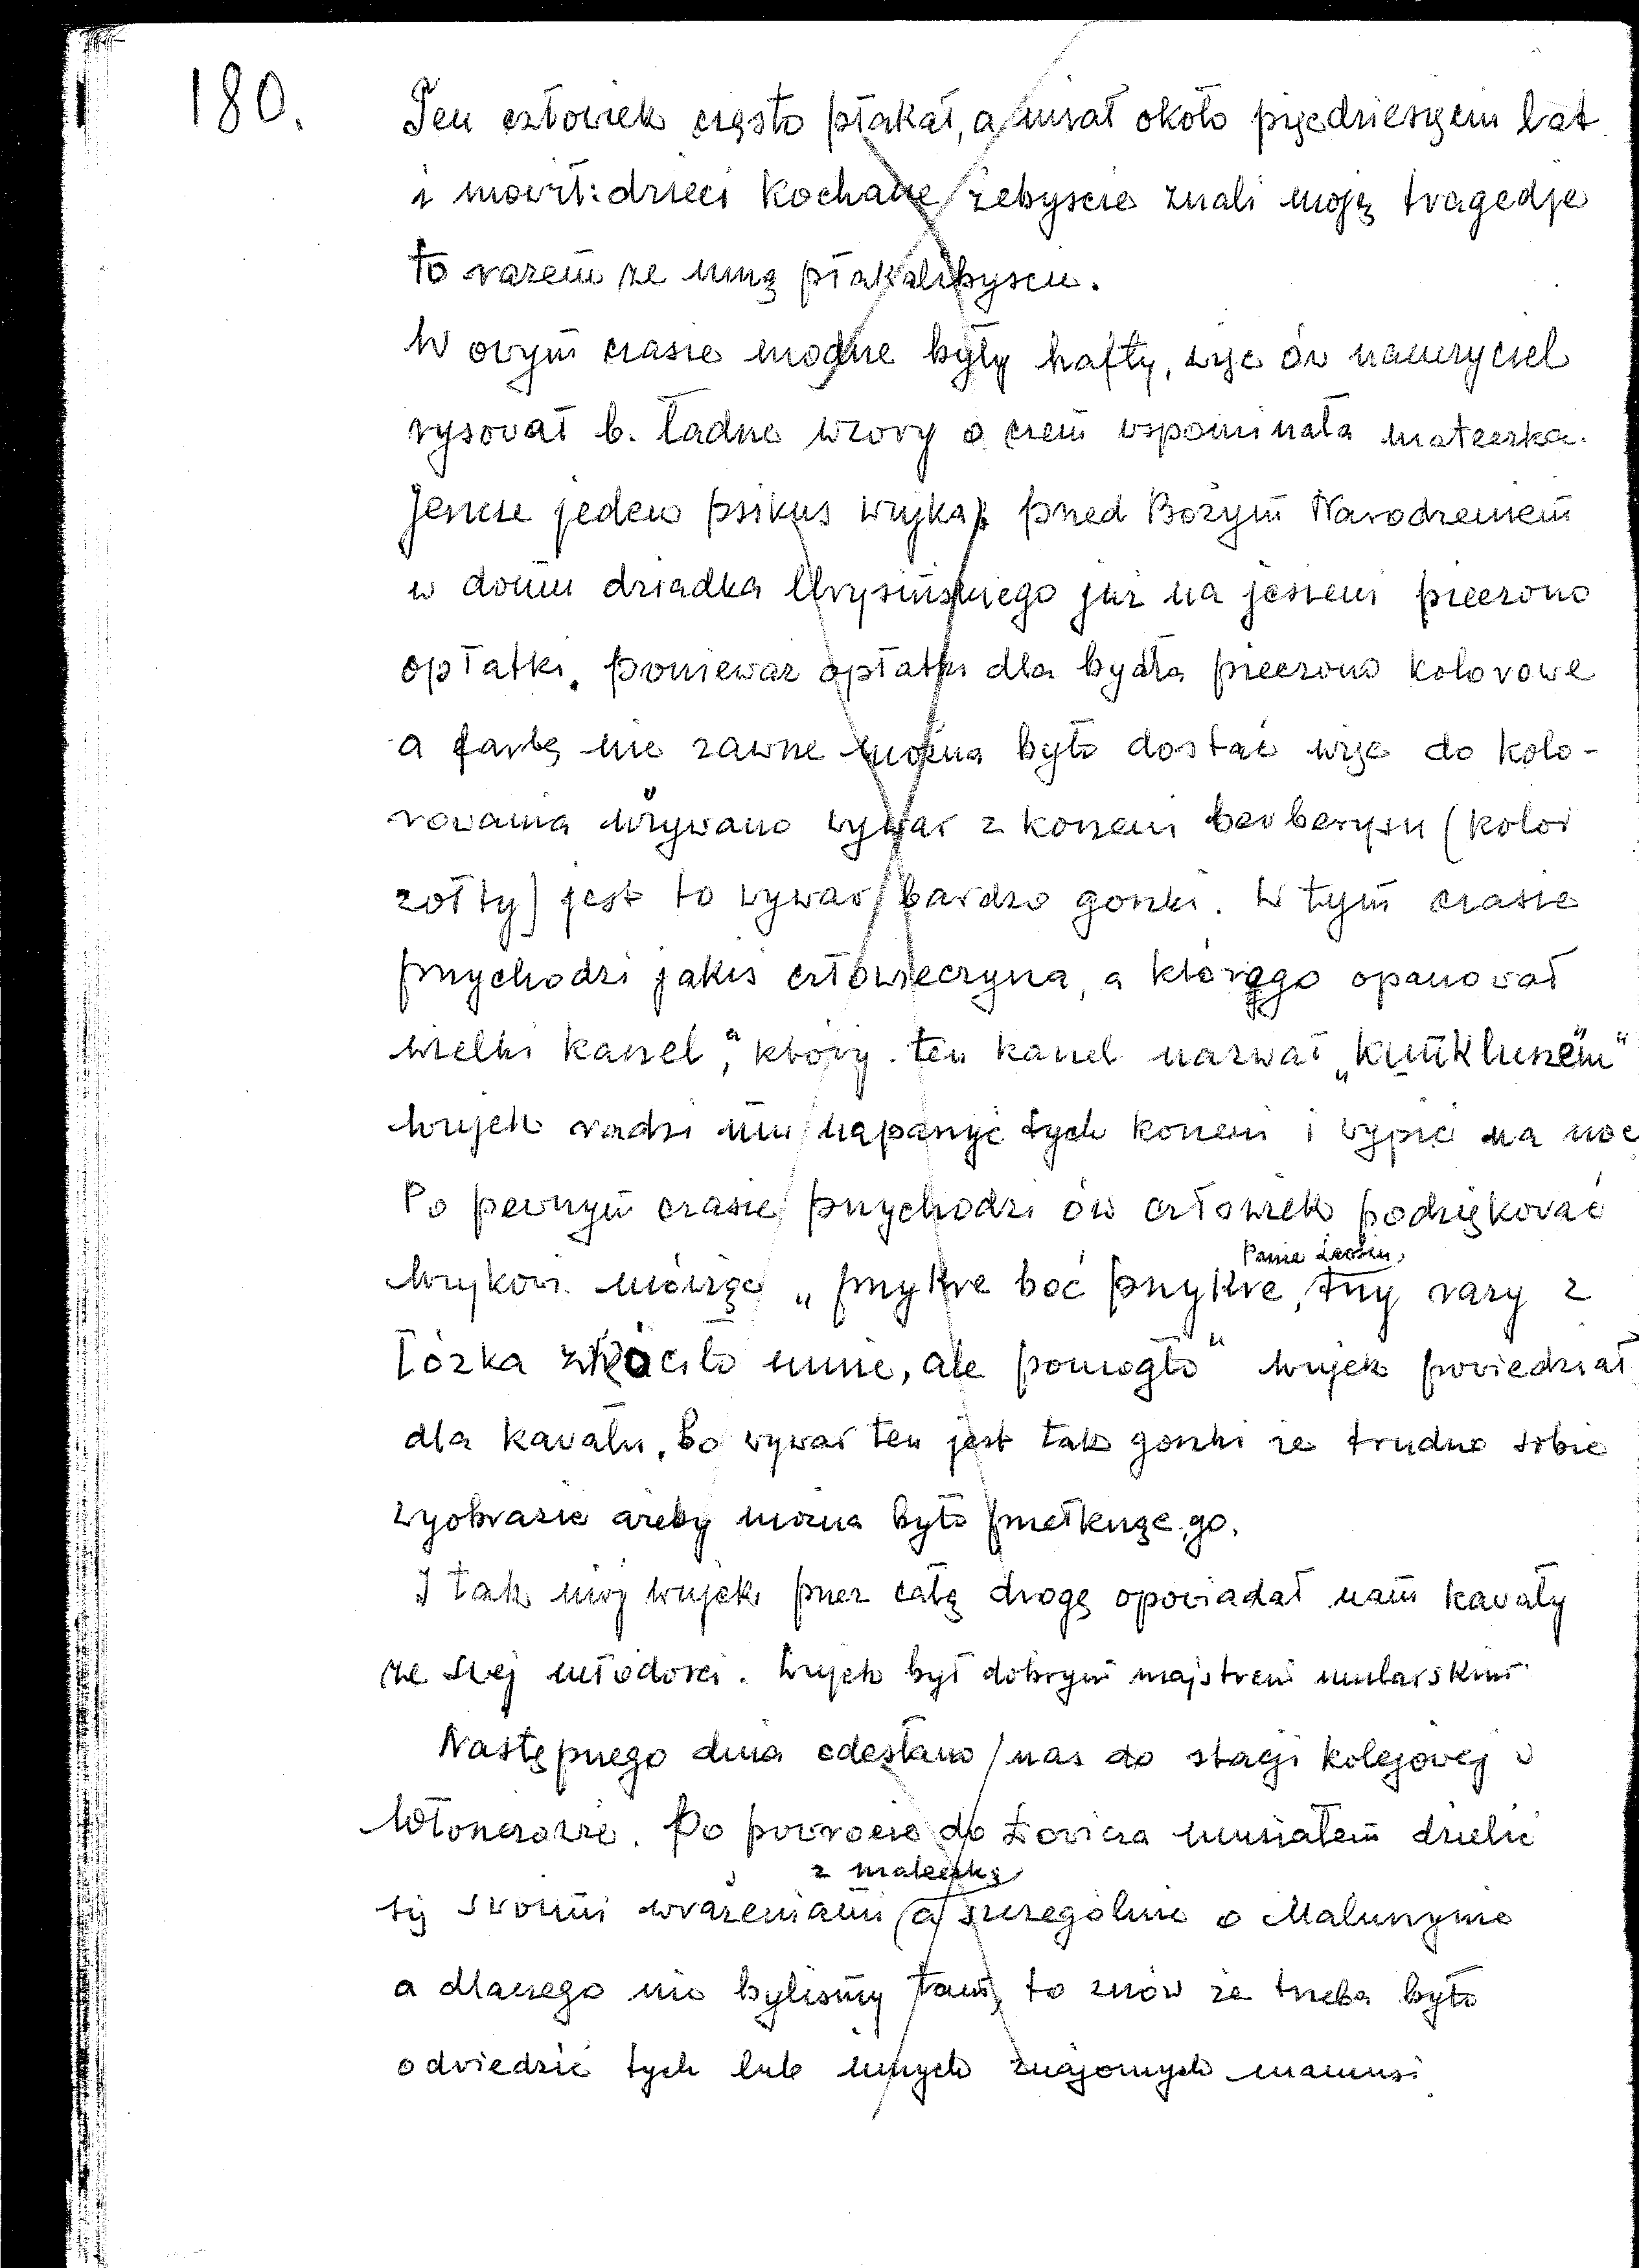 180.
Ten człowiek często płakał, a miał około pięćdziesięciu lat
i mówił: dzieci kochane żebyście znali moją tragedje
to razem ze mną płakalibyscie.
W owym czasie modne były hafty, więc ów nauczyciel
rysował b. ładne wzory o czem wspominała mateczka.
Jeszcze jeden psikus wujka: przed Bożym Narodzeniem
w domu dziadka Chrysińskiego już na jesieni pieczono
opłatki, ponieważ opłatki dla bydła pieczono kolorowe
a farbę nie zawsze można było dostać więc do kolo-
rowania używano wywar z korzeni berberysu (kolor
żółty) jest to wywar bardzo gorzki. W tym czasie
przychodzi jakiś człowieczyna, a którego opanował
wielki kaszel, a który ten kaszel nazwał „kuńkluszem"
wujek radzi mu naparzyć tych korzeni i wypić na noc
Po pewnym czasie przychodzi ów człowiek podziękować
Panie
wujkowi mówiąc „przykre boć przykre, trzy razy z
łóżka zwróciło mnie, ale pomogło" wujek powiedział
dla kawału, bo wywar ten jest tak gorzki że trudno sobie
wyobrazić ażeby można było przełknąć go.
I tak mój wujek przez całą drogę opowiadał nam kawały
ze swej młodości. Wujek był dobrym majstrem mularskim
Następnego dnia odesłano nas do stacji kolejowej w
Włoszczowie. Po powrocie do Łowicza musiałem dzielić
z mateczką
się swoimi wrażeniami a szczególnie o Maluszynie
a dlaczego nie byliśmy tam, to znów że trzeba było
odwiedzić tych lub innych znajomych mamusi